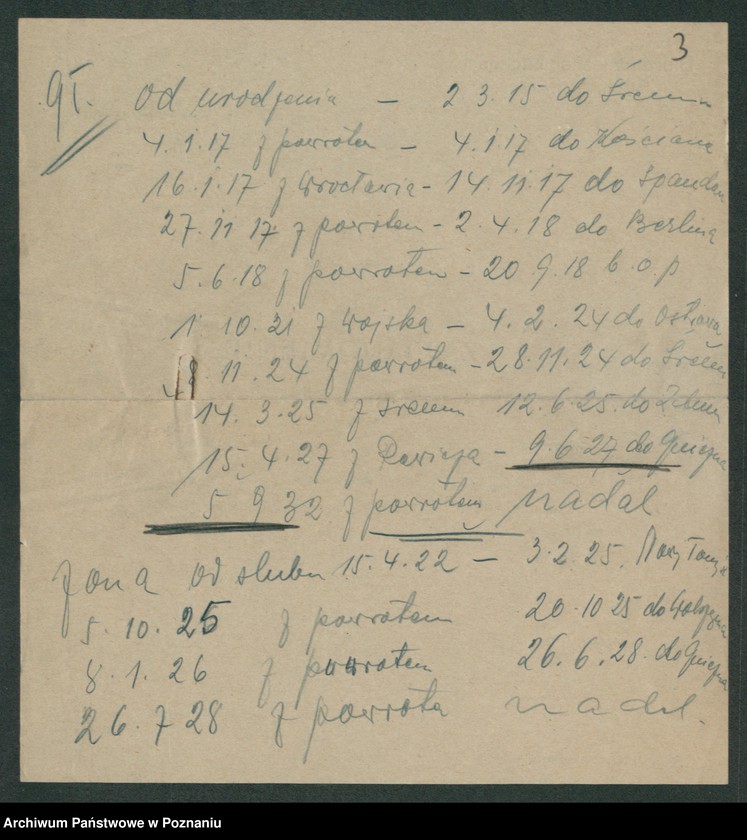 3
91. od urodzenia – 2 3.15 do Śremu
4.1.17 z powrotem – 4.1 17 do Kościana
16.1.17 z Wrocławia - 14.11.17 do Spandau
27.11 17 z powrotem - 2.4.18 do Berlina
5.6.18 z powrotem - 20 9.18 b.o.p
1 10.21 z wojska – 4.2.24 do Ostrowa
8 11.24 z powrotem - 28.11.24 do Śrem
14.3.25 z Srem 12.6.25. do
15.4.27 z – 9.6.27 do Gniezna
5 9 32 z powrotem nadal
Żona od slubu 15.4.22 – 3.2.25. Nowy Tomyśl
5.10.25 z powrotem 20.10 25 do
8.1.26 z powrotem 26.6.28. do Gniezna
26.7 28 z powrota nadal.
Archiwum Państwowe w Poznaniu